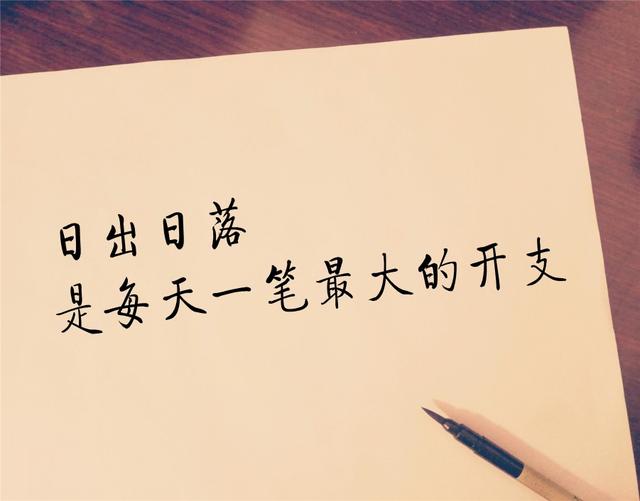 日出日落
是每天一笔最大的开支